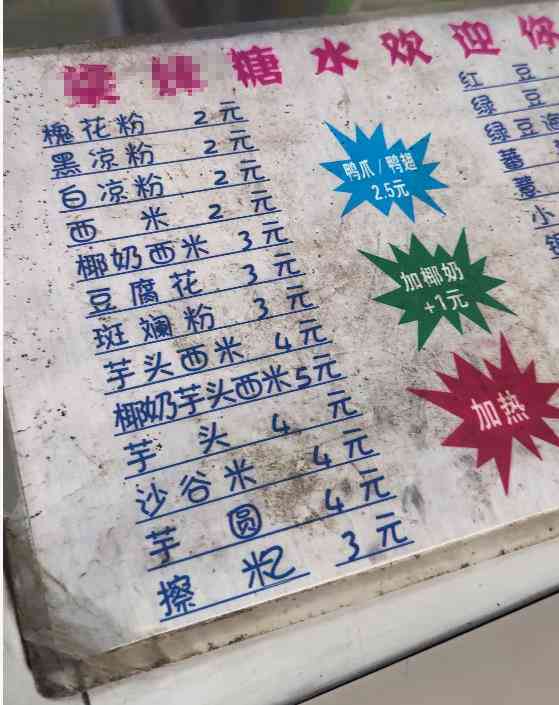 糖水欢迎你
槐花粉 2元
黑凉粉 2元
白凉粉 2元
西米 2元
椰奶西米 3元
豆腐花 3元
斑斓粉 3元
芋头西米 4元
椰奶芋头西米5元
芋头 4元
沙谷米 4元
芋圆 4元
擦 3元
鸭爪/鸭翅
2.5元
加椰奶
+1元
加热
红豆
绿豆
绿豆海
薏
小